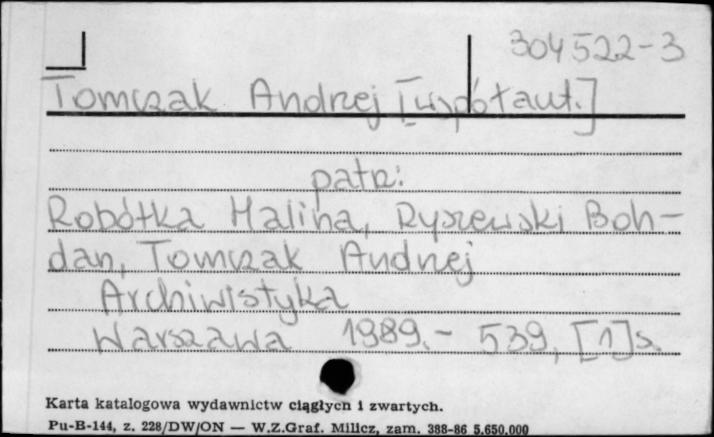 304522-3
Tomczak Andrzej [współaut.]
patrz:
Robótka Halina, Ryszewski Boh-
dan, Tomczak Andrzej
Archiwistyka
Warszawa 1989.- 539, [1]s.
Karta katalogowa wydawnictw ciągłych i zwartych.
Pu-B-144, z. 228/DW/ON — W.Z.Graf. Milicz, zam. 388-86 5.650.000